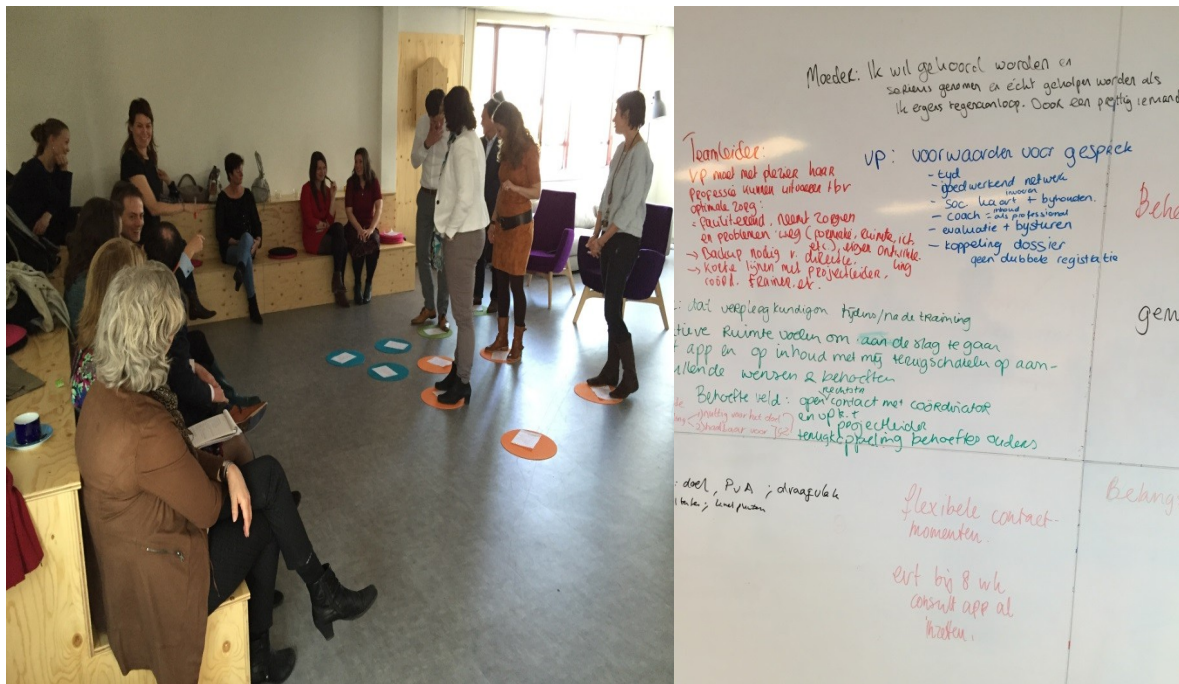 Moeder: Ik wil gehoord worden en
serieus genomen en écht geholpen worden als
ik ergens tegenaanloop. Door een prettig iemand
Teamleider:
VP moet met plezier haar
professie kunnen uitvoeren tbv
optimale zorg:
faciliterend, neemt zorgen
en problemen weg (formatie, ruimte, ict
etc.), eigen ontwikke-
ling
→ Backup nodig v. directie.
→ Korte lijnen met projectleider,
coörd. trainer, etc.
VP: voorwaarden voor gesprek
- tijd
- goedwerkend netwerk
invoeren
- soc. kaart + byhouden.
inhoud
- coach = als professional
- evaluatie + bysturen
- koppeling dossier
geen dubbele registratie
Behe
: dat verpleegkundigen tijdens/na de training
tieve ruimte voelen om aan de slag te gaan
app en op inhoud met mij terugschakelen op aan-
llende wensen & behoeften
rechtstr
Behoefte veld: open contact met coördinator
en vpk. +
projectleider
terugkoppeling behoeftes ouders
1) nuttig voor het doel
2) haalbaar voor JGZ
gem
: doel, PvA ; draagvlak
; knelpunten
flexibele contact-
momenten.
evt bij 8 wk
consult app al
inzetten.
Belang